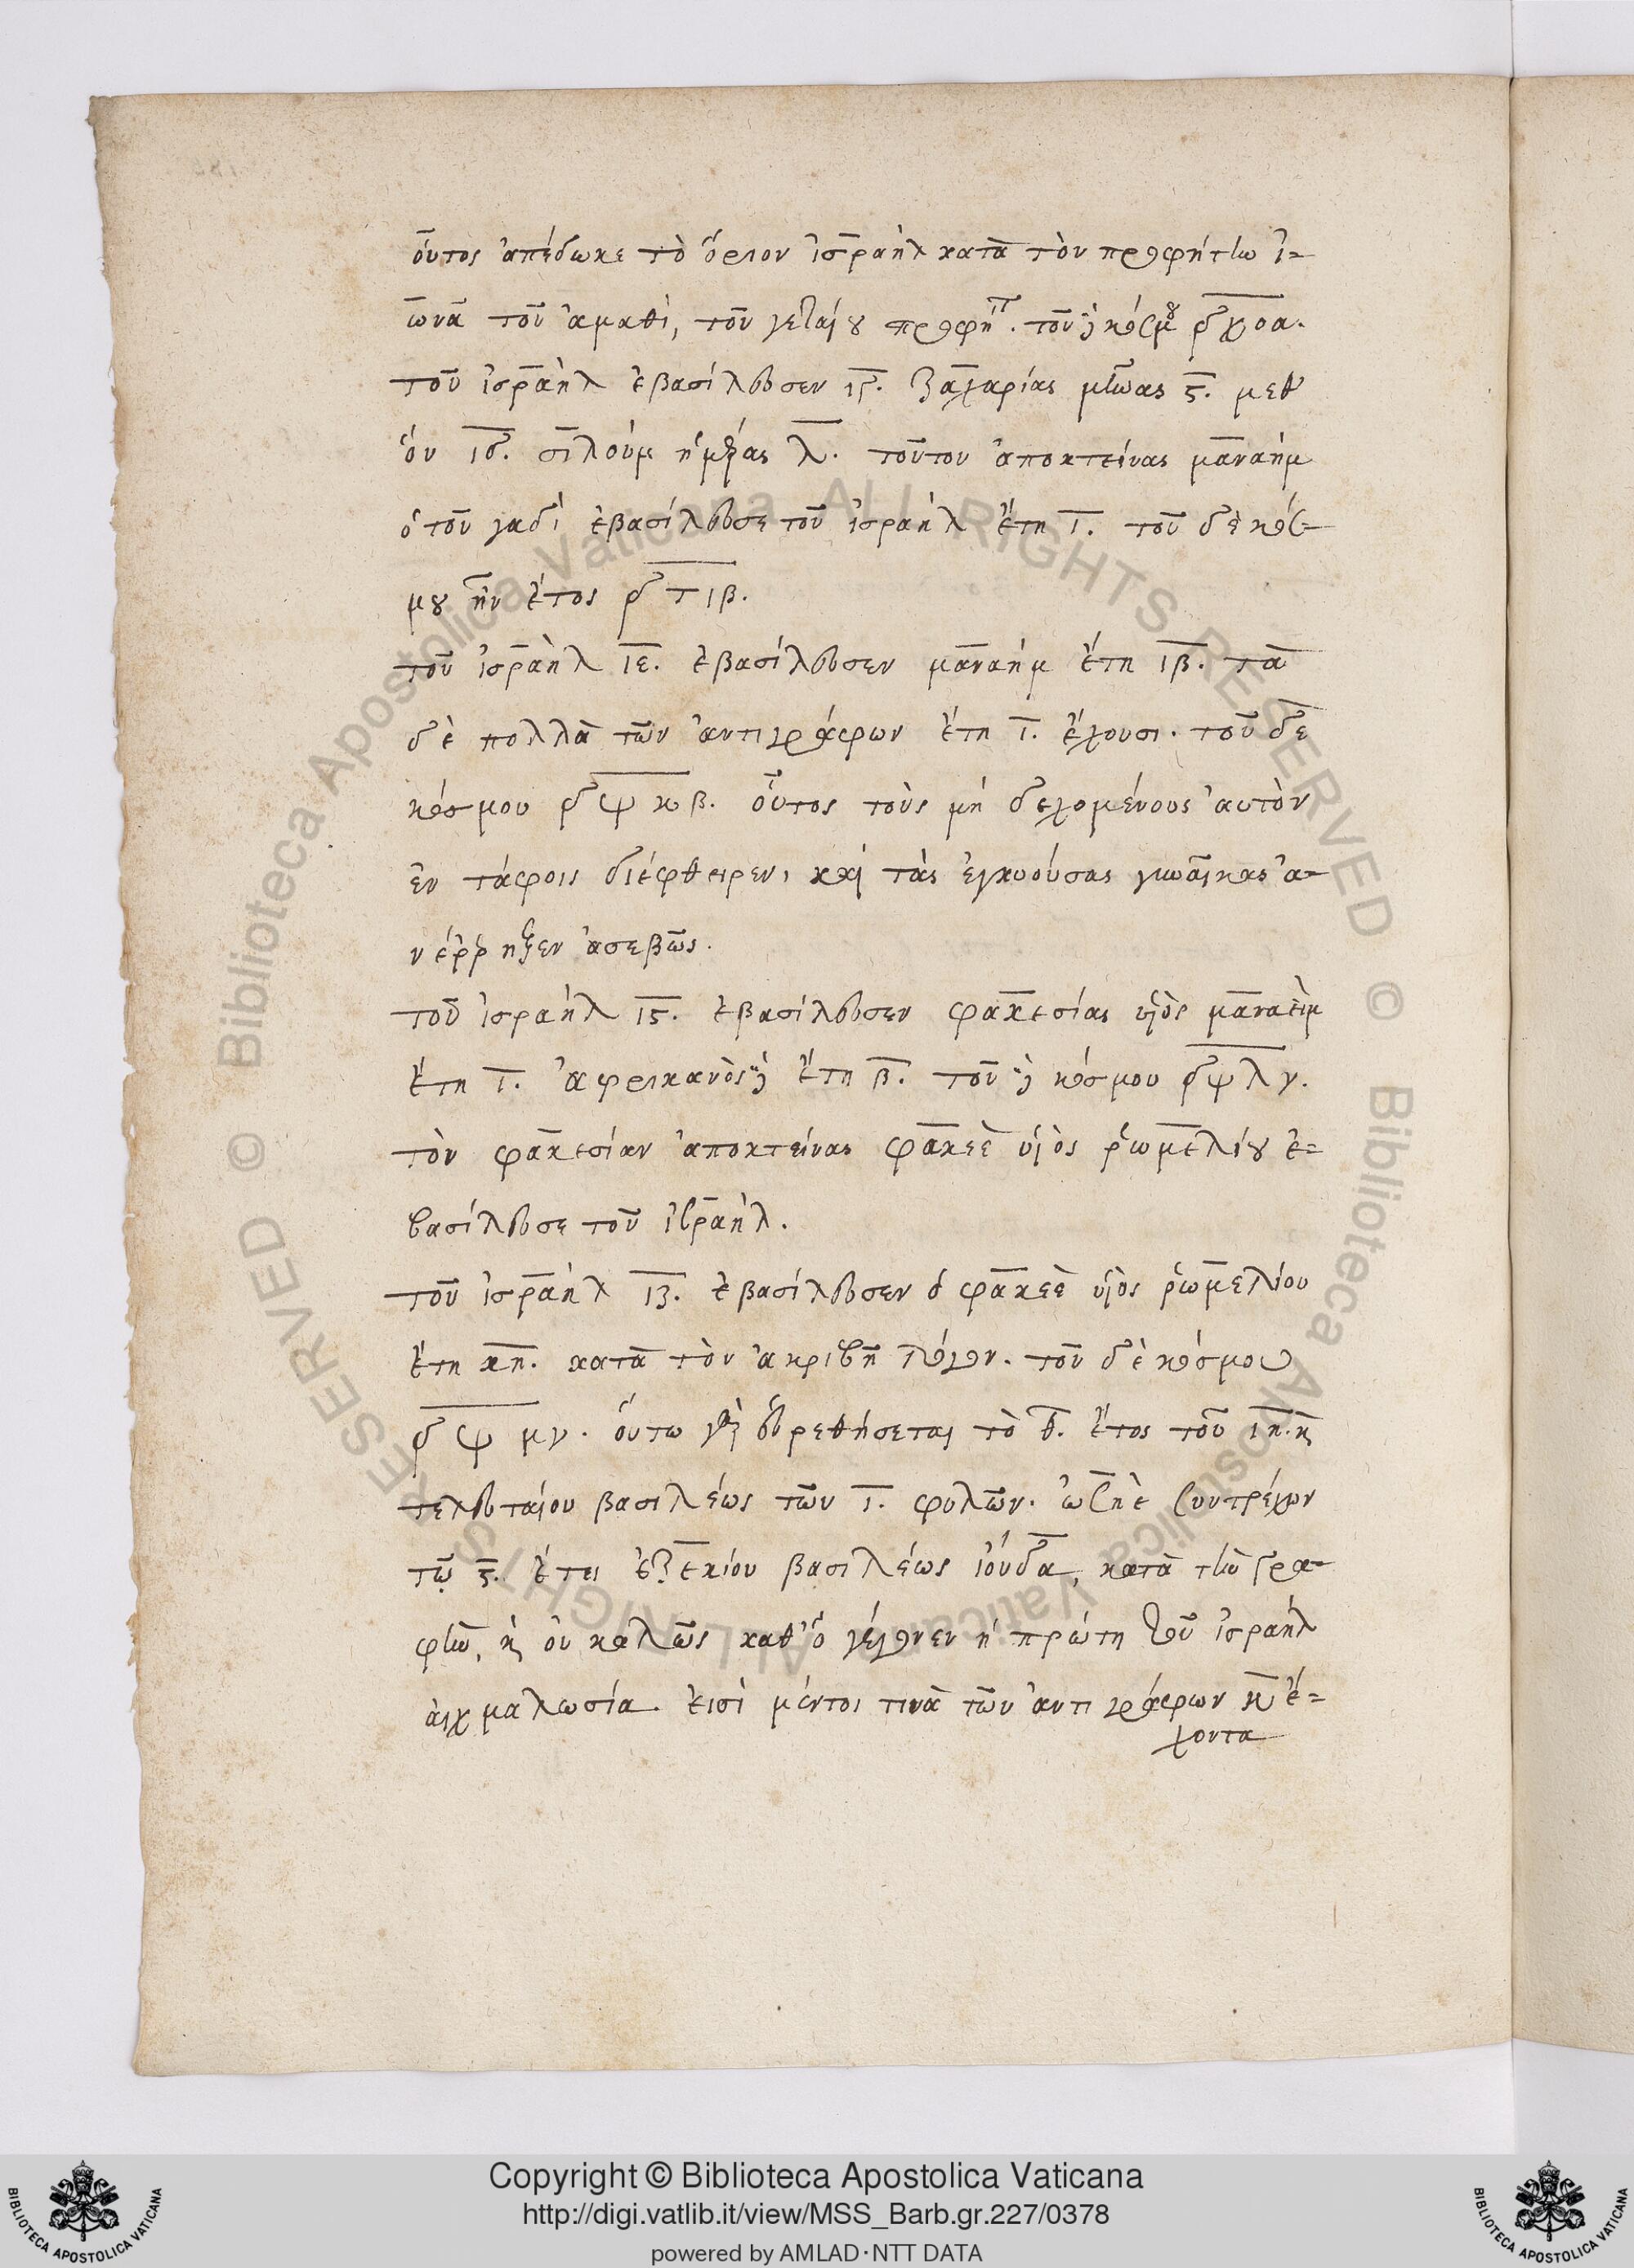 οὗτος ἀπέδωκε τὸ ὅριον ἰσραὴλ κατὰ τὸν προφήτην ἰ=
ωνᾶ τοῦ ἀμαθὶ, τοῦ προφή͞τ. τοῦ δὲ κόσμου ͵δχοα.
τοῦ ἰσραὴλ ἐβασίλευσεν ιγ. ζαχαρίας μῆνας ϛ. μεθ
ὃν ιδ. σιλοὺμ ἡμέρας λ. τοῦτον ἀποκτείνας μαναὴμ
ὁ τοῦ γαδὶ ἐβασίλευσε τοῦ ἰσραὴλ ἔτη ι. τοῦ δὲ κόσ=
μου ἦν ἔτος ͵δτιβ.
τοῦ ἰσραὴλ ιε. ἐβασίλευσεν μαναήμ ἔτη ιβ. τὰ
δὲ πολλὰ τῶν ἀντιγράφων ἔτη ι. ἔχουσι. τοῦ δὲ
κόσμου ͵δψκβ. οὗτος τοὺς μὴ δεχομένους αὐτὸν
ἐν τάφοις διέφθειρεν, καὶ τὰς ἐγκυούσας γυναῖκας ἀ=
νέρρηξεν ἀσεβῶς.
τοῦ ἰσραήλ ιϛ. ἐβασίλευσεν φακεσίας υἱὸς μαναεὶμ
ἔτη ι. ἀφρικανὸς δὲ ἔτη β. τοῦ δὲ κόσμου ͵δψλγ.
τὸν φακεσίαν ἀποκτείνας φακεὲ υἱὸς ῥωμελίου ἐ=
βασίλευσε τοῦ ἰσραὴλ.
τοῦ ἰσραὴλ ιζ. ἐβασίλευσεν ὁ φακεὲ υἱὸς ῥωμελίου
ἔτη κη. κατὰ τὸν ἀκριβῆ λόγον. τοῦ δὲ κόσμου
͵δψμγ. οὕτω γὰρ εὑρεθήσεται τὸ θ. ἔτος τοῦ ιη. κ
τελευταίου βασιλέως τῶν ι. φυλῶν. ὠσηὲ συντρέχων
τῷ ϛ. ἔτει ἐζεκίου βασιλέως ἰούδα, κατὰ τὴν γρα=
φὴν, κ οὐ καλῶς καθ' ὃ γέγονεν ἡ πρώτη τοῦ ἰσραήλ
αἰχμαλωσία. εἰσὶ μέντοι τινὰ τῶν ἀντιγράφων κ ἔ=
χοντα
Copyright © Biblioteca Apostolica Vaticana
http://digi.vatlib.it/view/MSS_Barb.gr.227/0378
powered by AMLAD·NTT DATA
BIBLIOTECA APOSTOLICA VATICANA
BIBLIOTECA APOSTOLICA VATICANA
© Biblioteca Apostolica Vaticana ALL RIGHTS RESERVED © Biblioteca Apostolica Vaticana ALL RIGHTS RESERVED